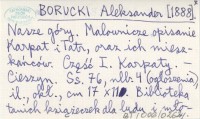 BORUCKI Aleksander [1888]
Nasze góry. Malownicze opisanie
Karpat i Tatr, oraz ich miesz-
kańców. Część I. Karpaty. –
Cieszyn. Ss. 76, nlb. 4 (ogłoszenia),
il., okł., cm 17 x 11. Biblioteka
tanich książeczek dla ludu i mło-